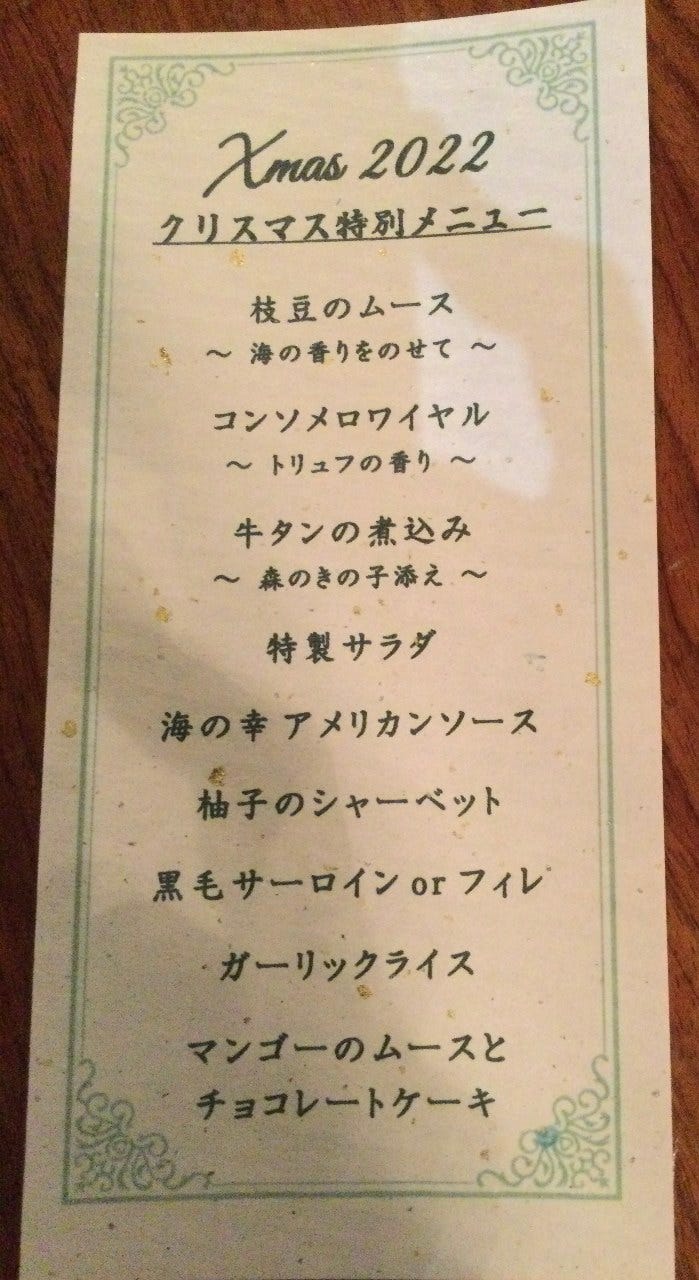 Xmas 2022
クリスマス特別メニュー
枝豆のムース
～ 海の香りをのせて ～
コンソメロワイヤル
～ トリュフの香り ～
牛タンの煮込み
～ 森のきの子添え ～
特製サラダ
海の幸 アメリカンソース
柚子のシャーベット
黒毛サーロイン or フィレ
ガーリックライス
マンゴーのムースと
チョコレートケーキ